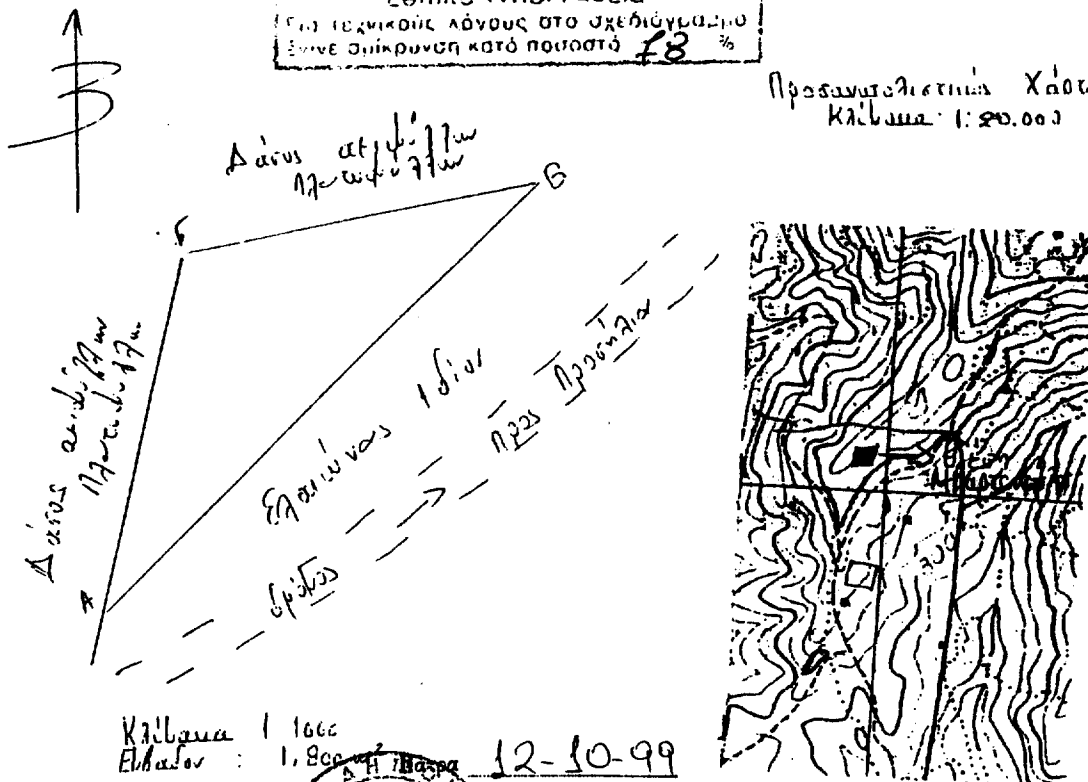 Για τεχνικούς λόγους στο σχεδιάγραμμα
έγινε σμίκρυνση κατά ποσοστό 78 %
Β
Προσανατολιστικός Χάρτ
Κλίμακα: 1:20.000
Δάσος αειφύλλων
Πλατυφύλλων
Γ
Β
Δάσος αειφύλλων
Πλατυφύλλων
Ελαιώνας ιδίου
δρόμος Προς Προσήλιον
Α
Θέση
700
Κλίμακα 1 1000
Εμβαδόν : 1,800
12-10-99